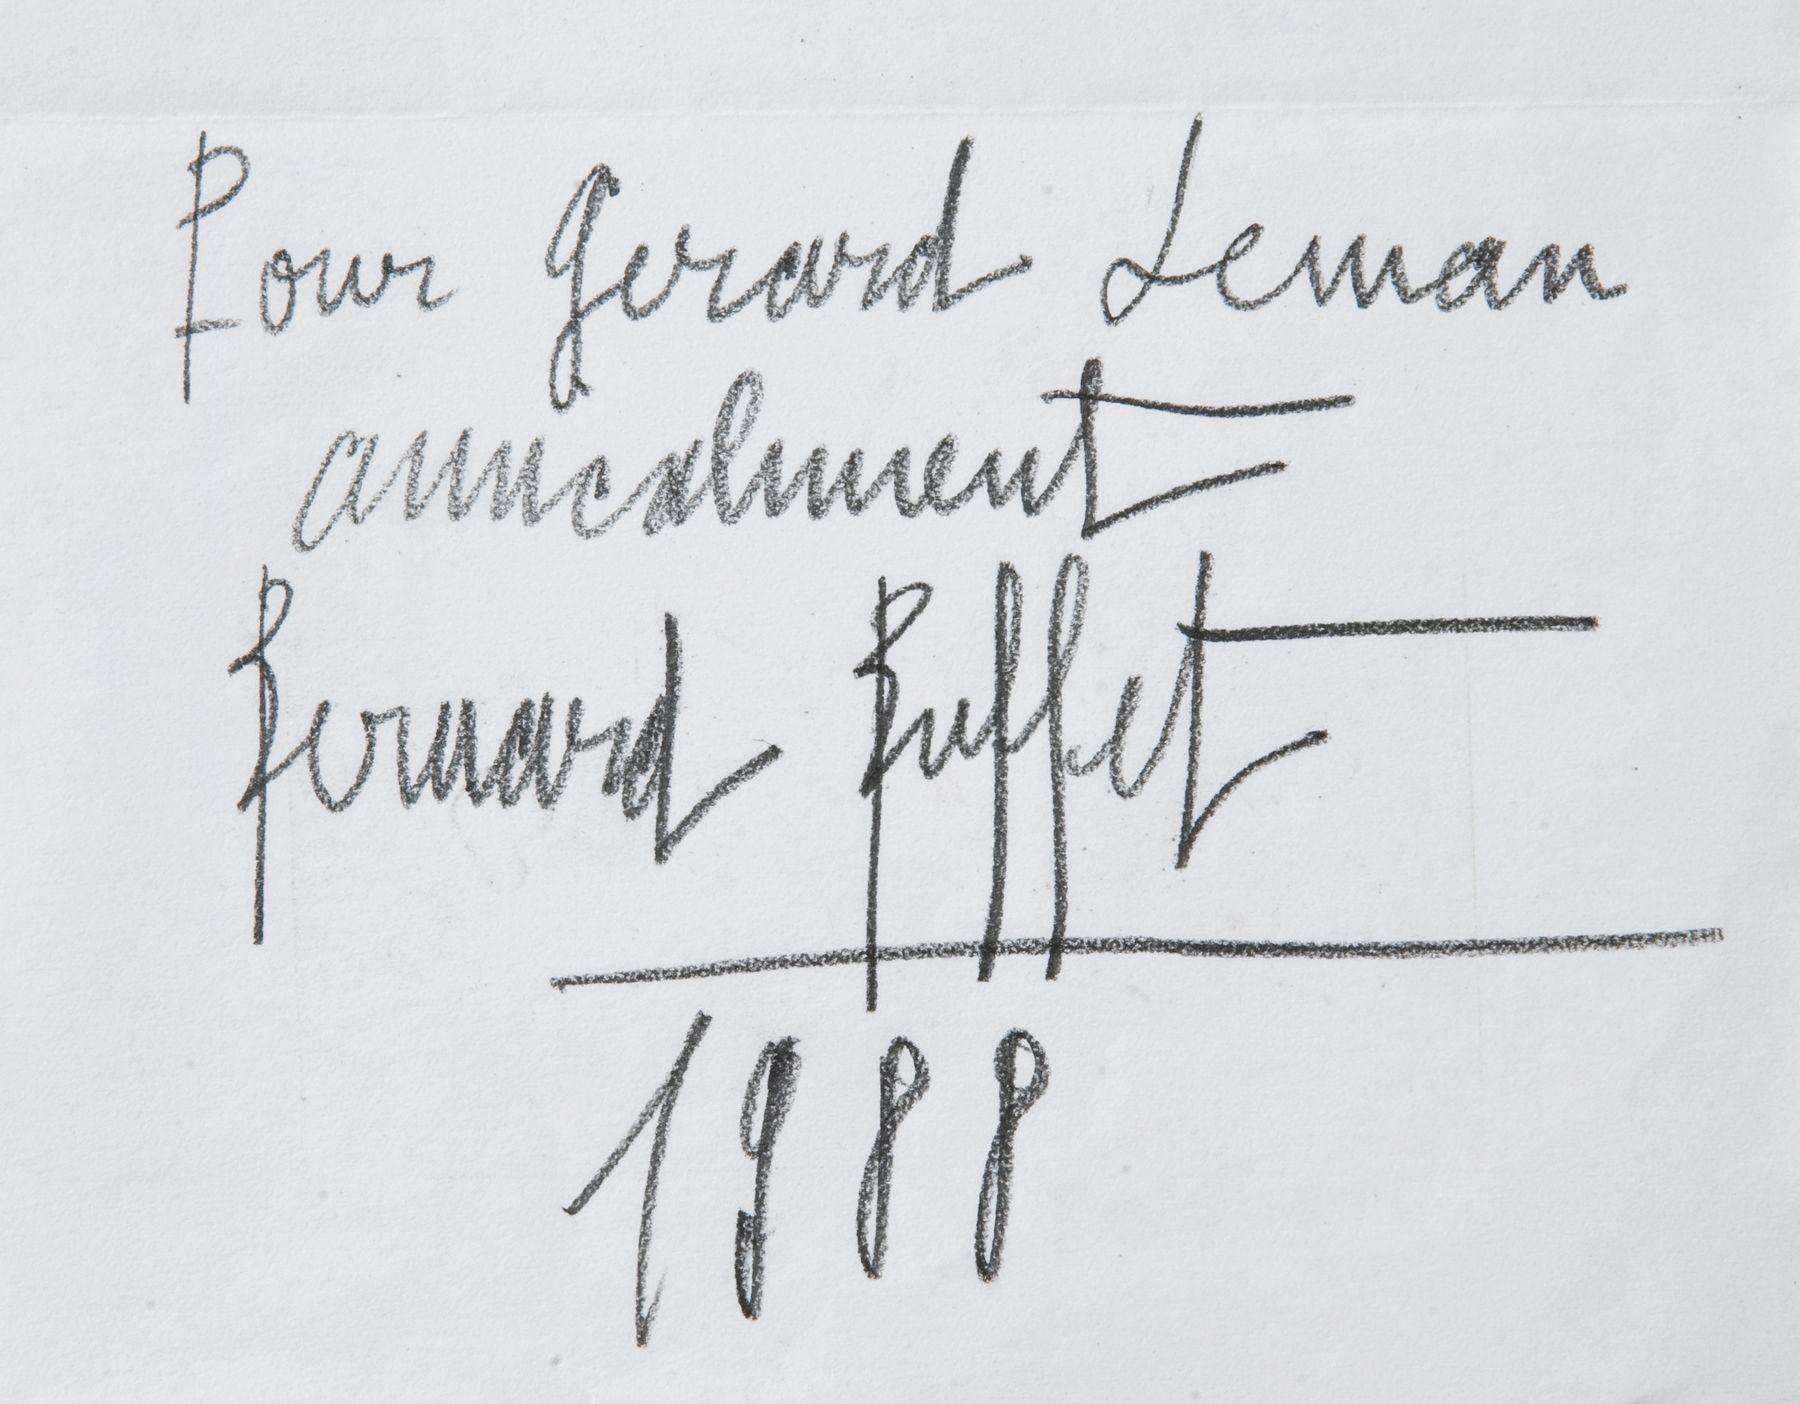 Pour Gerard Leman
amicalement
Bernard Buffet
1988